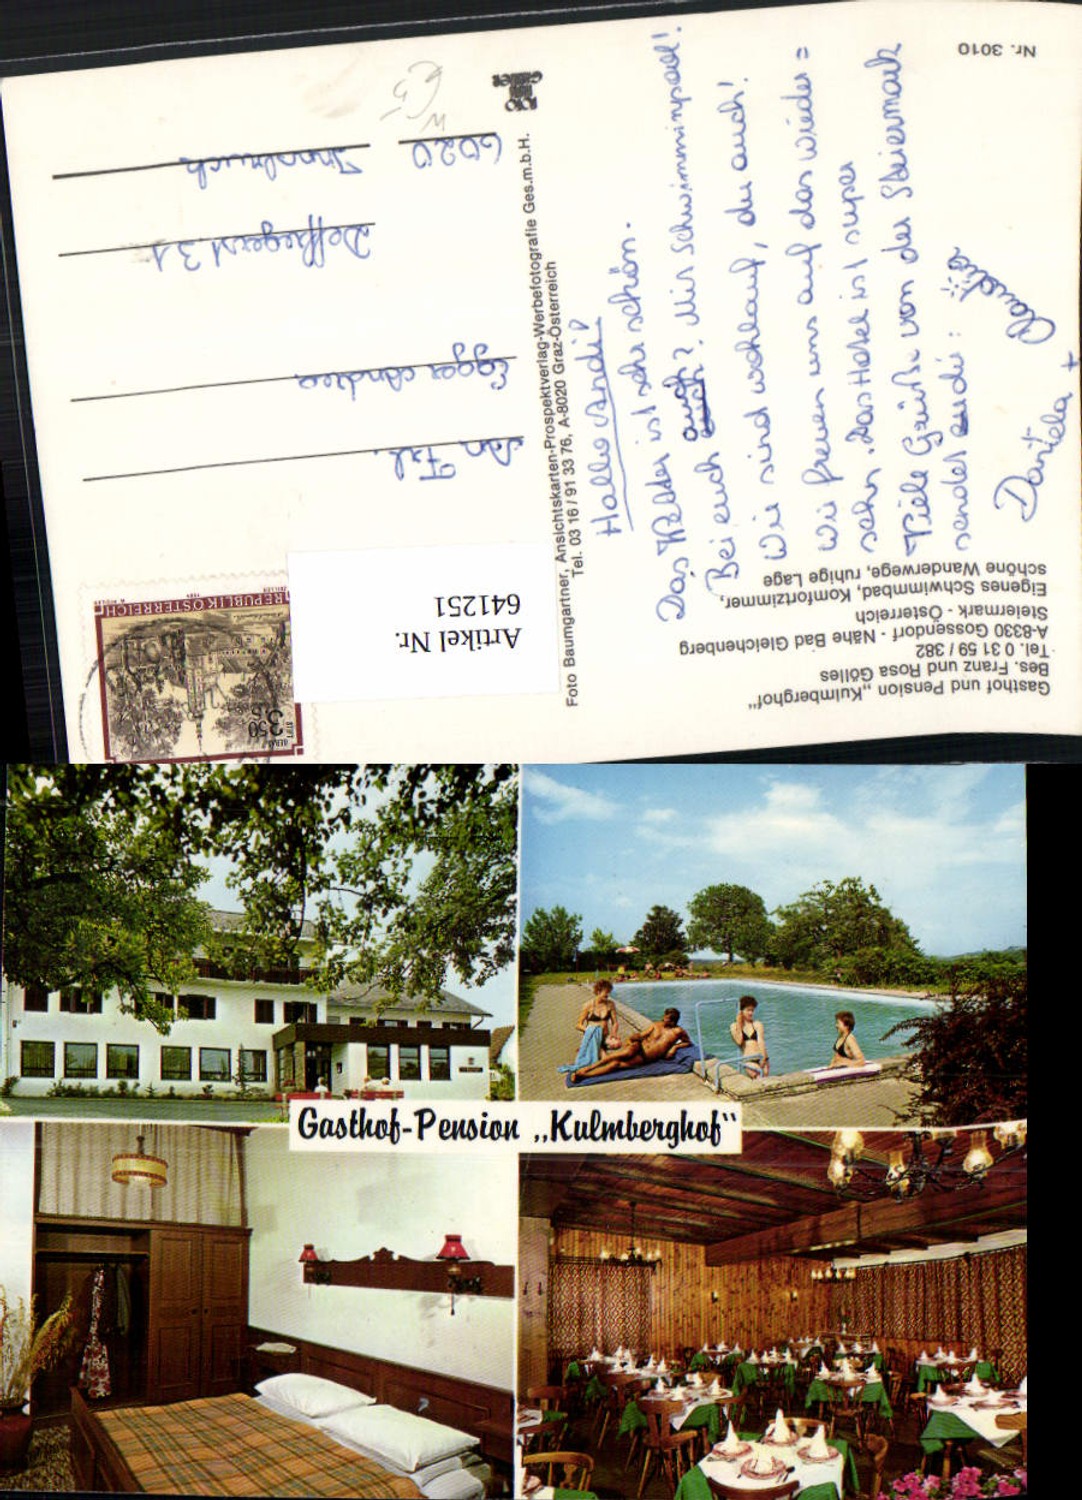 Nr. 3010
Gasthof und Pension „Kulmberghof"
Bes. Franz und Rosa Gölles
Tel. 0 31 59 / 382
A-8330 Gossendorf - Nähe Bad Gleichenberg
Steiermark - Österreich
Eigenes Schwimmbad, Komfortzimmer,
schöne Wanderwege, ruhige Lage
Hallo Andi!
Das Wetter ist sehr schön.
Bei euch auch? Mir Schwimmingpool!
Wir sind wohlauf, du auch!
Wir freuen uns auf das wieder=
sehn. Das Hotel ist super
Viele Grüße von der Steiermark
sendet
Daniela + Claudia
Foto Baumgartner, Ansichtskarten-Prospektverlag-Werbefotografie Ges.m.b.H.
Tel. 03 16 / 91 33 76, A-8020 Graz-Österreich
Artikel Nr.
641251
3.50
REPUBLIK ÖSTERREICH
An Frl.
Egger Andrea
Defreggerst 31
6020 Innsbruck
Gasthof-Pension „Kulmberghof"